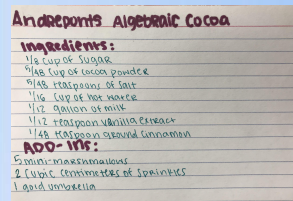 Andreponts Algebraic Cocoa
Ingredients:
1/8 cup of sugar
5/48 cup of cocoa powder
5/48 teaspoons of salt
1/16 cup of hot water
1/12 gallon of milk
1/12 teaspoon vanilla extract
1/48 teaspoon ground cinnamon
ADD-Ins:
5 mini-marshmallows
2 cubic centimeters of sprinkles
1 gold umbrella